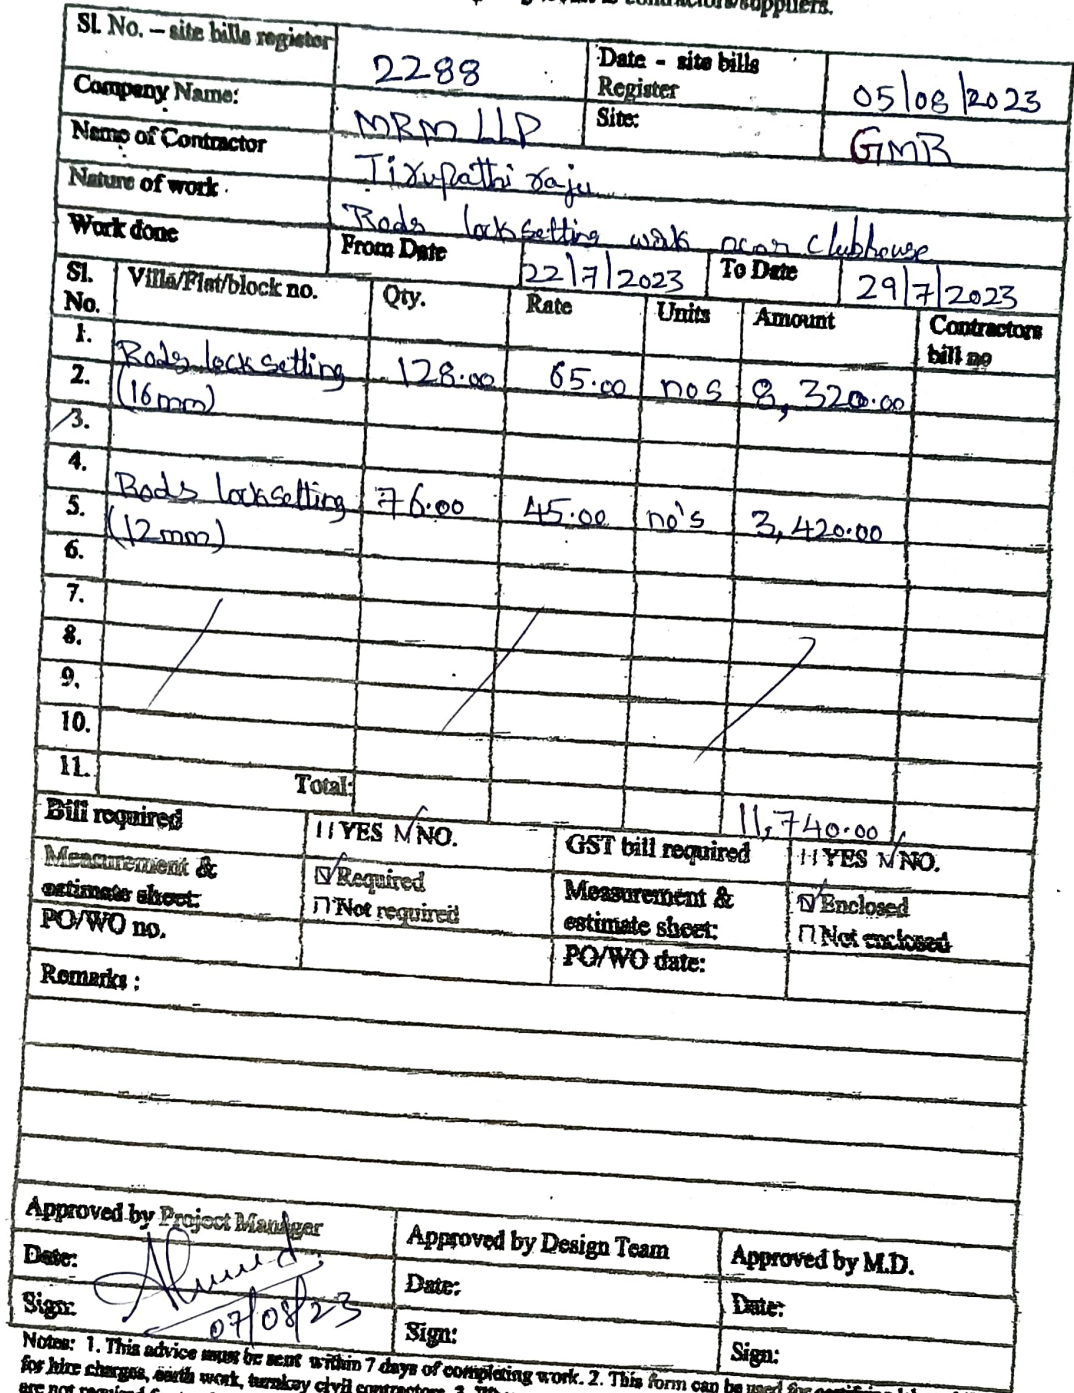 contractors/suppliers.
Sl. No. – site bills register 2288 Date - site bills Register 05/08/2023
Company Name: MRM LLP Site: GMR
Name of Contractor Tirupathi raju
Nature of work Rods lock setting work near clubhouse
Work done From Date 22/7/2023 To Date 29/7/2023
Sl. No. Villa/Flat/block no. Qty. Rate Units Amount Contractors bill no
1.
2. Rods lock setting (16mm) 128.00 65.00 nos 8,320.00
3.
4.
5. Rods lock setting (12mm) 76.00 45.00 no's 3,420.00
6.
7.
8.
9.
10.
11.
Total: 11,740.00
Bill required YES NO. GST bill required YES NO.
Measurement & estimate sheet: Required Not required Measurement & estimate sheet: Enclosed Not enclosed
PO/WO no. PO/WO date:
Remarks :
Approved by Project Manager Approved by Design Team Approved by M.D.
Date: Date: Date:
Sign: 07/08/23 Sign: Sign:
Notes: 1. This advice must be sent within 7 days of completing work. 2. This form can be used for
for hire charges, earth work, turnkey civil contractors. 3.
are not required